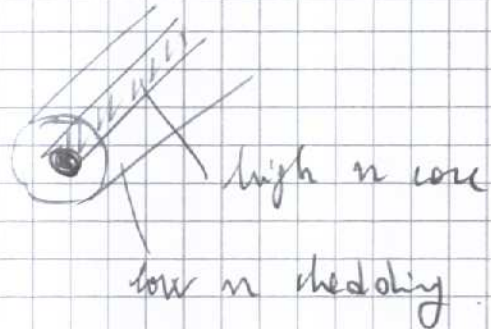 high n core
low n cladding